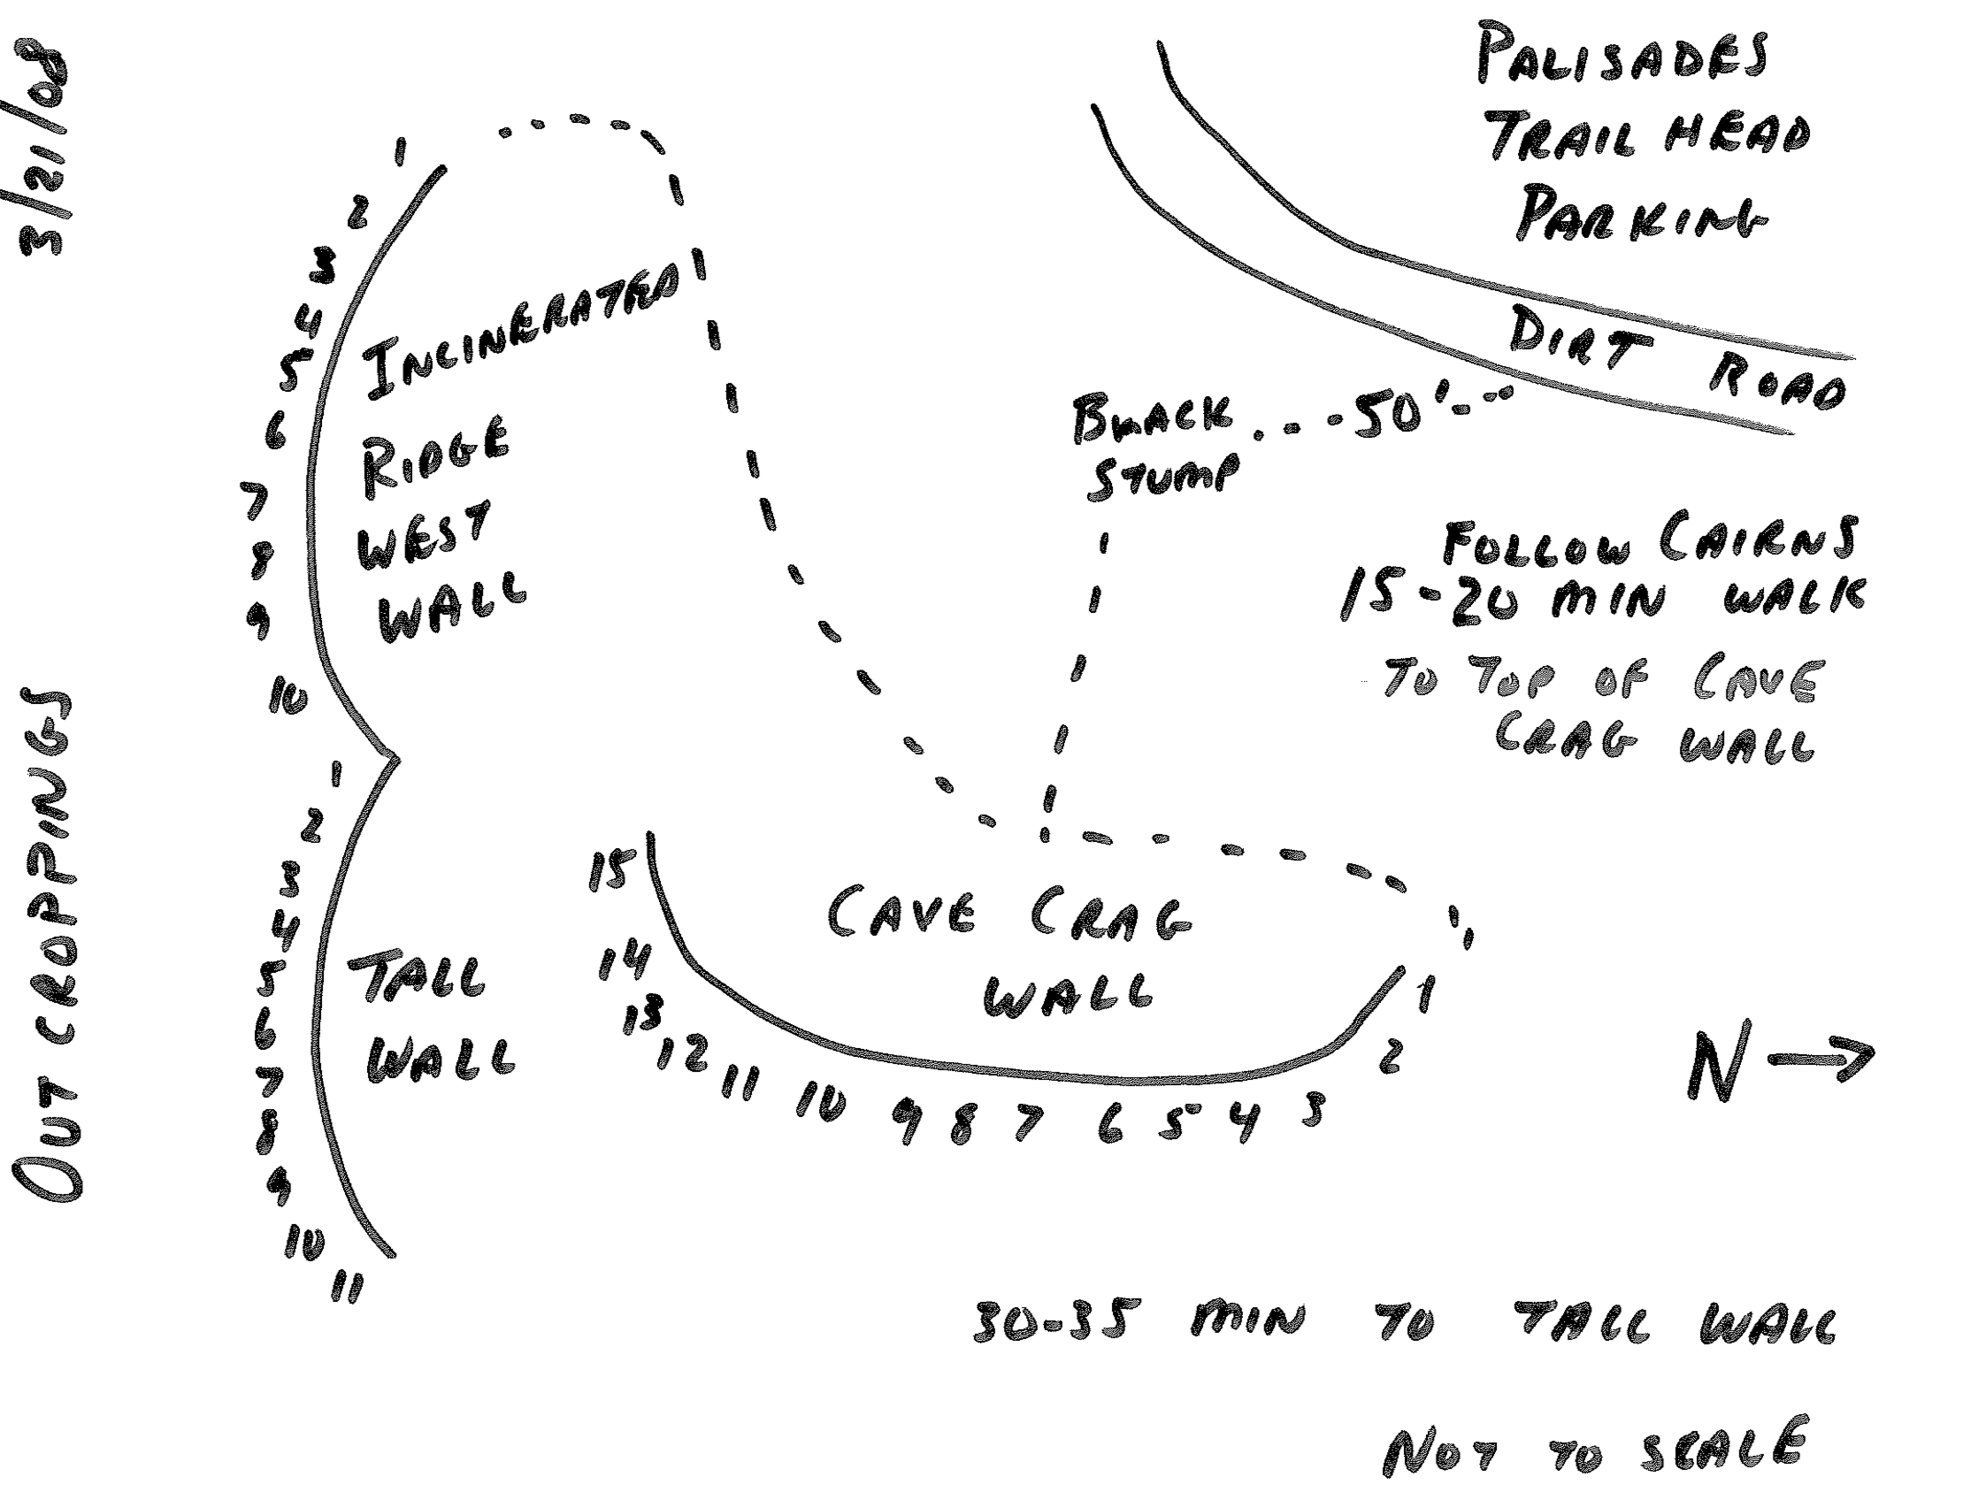 3/21/08
OUT CROPPINGS
PALISADES
TRAIL HEAD
PARKING
DIRT ROAD
BLACK ...-50'--..
STUMP
FOLLOW CAIRNS
15-20 MIN WALK
TO TOP OF CAVE
CRAG WALL
1
2
3
4
5
6
7
8
9
10
INCINERATED
RIDGE
WEST
WALL
1
2
3
4
5
6
7
8
9
10
11
TALL
WALL
CAVE CRAG
WALL
15
14
13
12
11
10
9
8
7
6
5
4
3
2
1
N
30-35 MIN TO TALL WALL
NOT TO SCALE